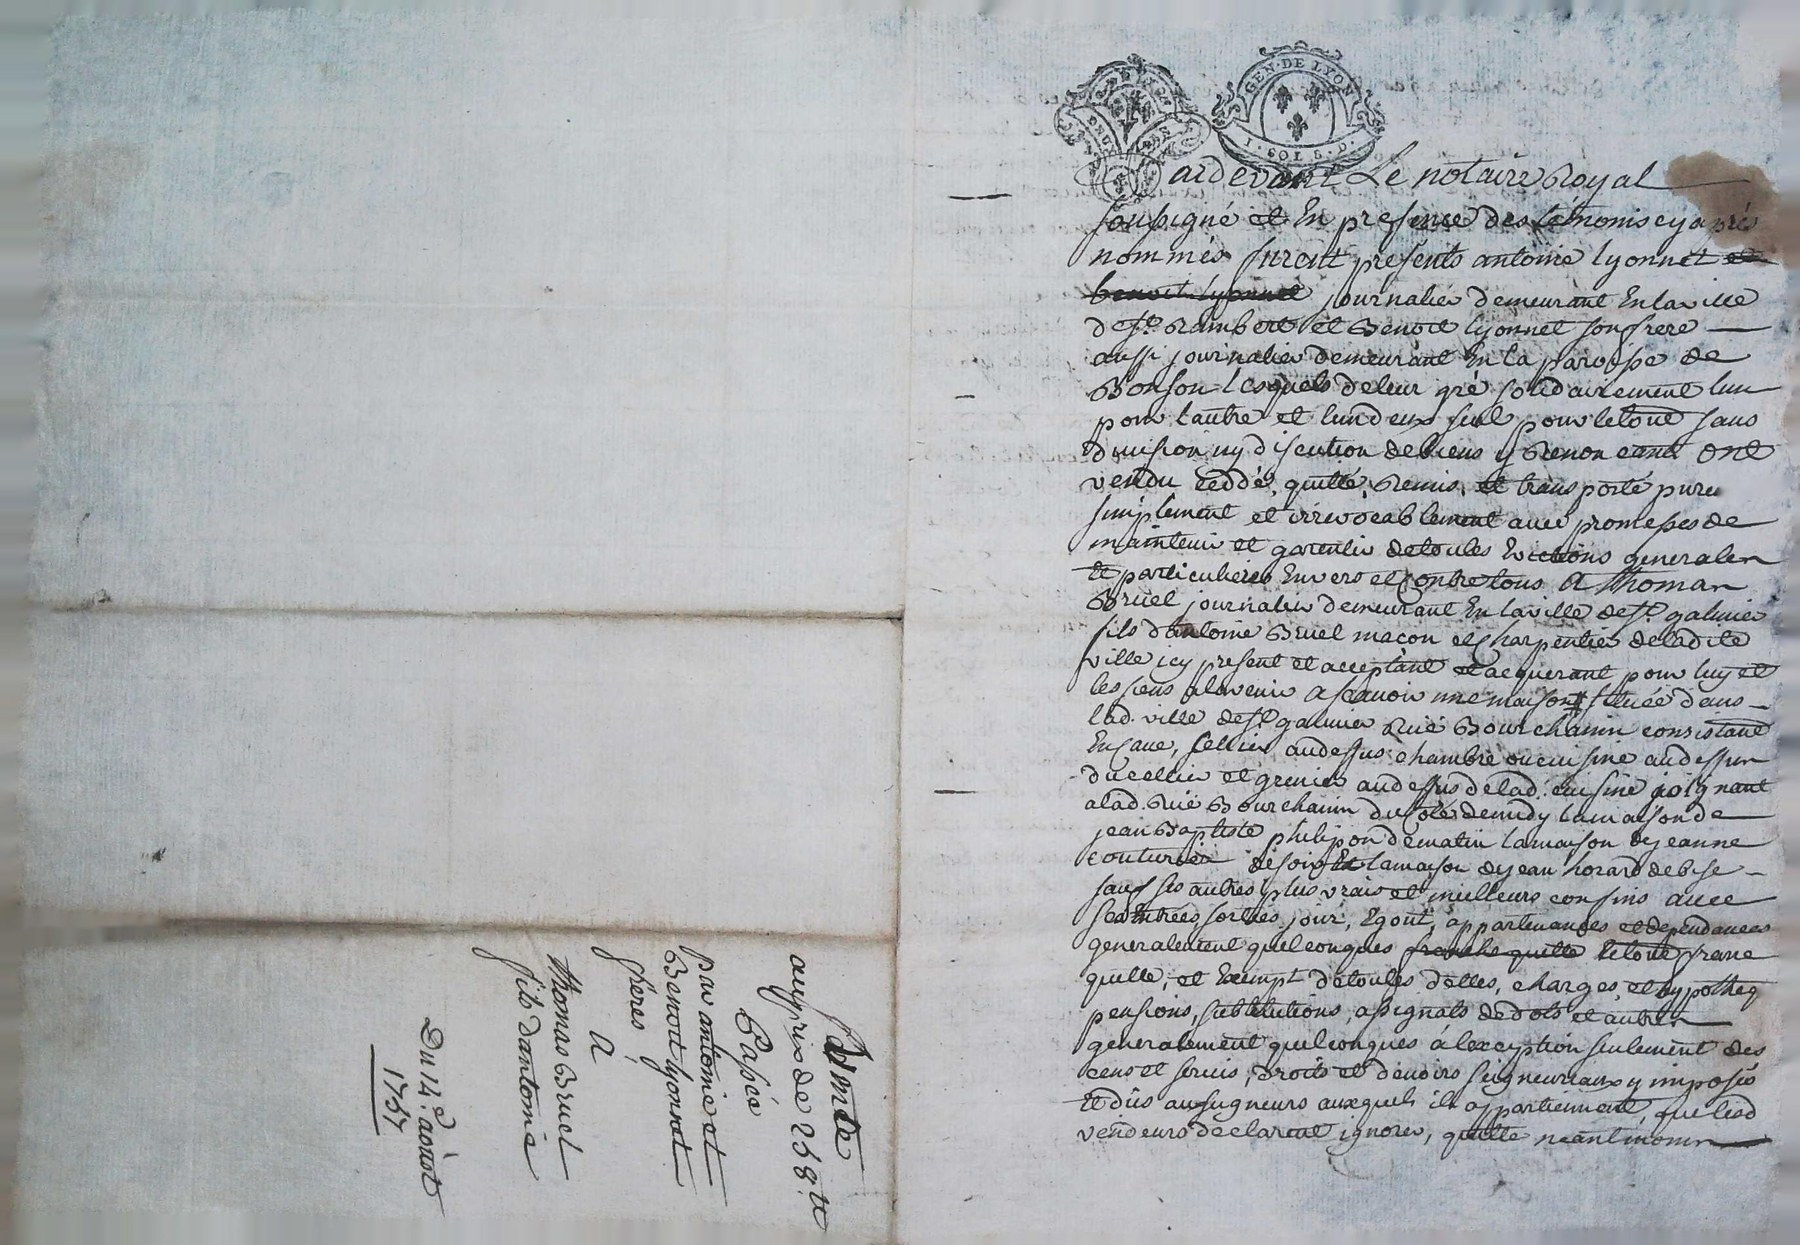 GEN. DE LYON
1. SOL 5. D.
Pardevant Le notaire Royal
soussigné et En presence des témoins cy aprés
nommés furent presents antoine lyonnet et
benoit lyonnet journalier demeurant En la ville
de St. Rambert et Benoit lyonnet son frere
aussi journalier demeurant En la paroisse de
Bonson lesquels de leur gré solidairement lun
pour lautre et lun deux seul pour le tout sans
division ny discution de biens y Renoncant ont
vendu ceddé, quitté, Remis, et transporté pure
simplement et irrevocablement avec promesses de
maintenir et garentir de toutes Evictions generales
et particulieres Envers et Contre tous A Thomas
Bruel journalier demeurant En la ville de St. galmier
fils dantoine Bruel macon et charpentier de ladite
ville icy present et acceptant et acquerant pour luy et
les siens alavenir ascavoir une maison située dans
lad. ville de St. galmier Rüe Bourchanin consistant
En cave, sellier au dessus chambre ou cuisine au dessus
du cellier et grenier au dessus de lad. cuisine joignant
a lad. Rüe Bourchanin du Coté de midy la maison de
jean Baptiste philipon de matin la maison de jeanne
couturier de soir Et la maison de jean horard de bise
sauf ses autres plus vrais et meilleurs confins avec
ses Entrées sorties, jour, Egout, appartenances et dependances
generalement quelconques franche quitte le tout franc
quitte, et Exempt de toutes dettes, charges, et hypotheq
pensions, substitutions, assignats de dots et autres
generalement quelconques à lexception seulement des
cens et servis, droits et devoirs seigneuriaux y imposés
et dûs au seigneurs auxquels ils appartiennent, que lesd
vendeurs déclarent ignorer, quitte neantmoins
Vente
au prix de 258 tt
Passée
par antoine et
Benoit lyonnet
freres
A
Thomas Bruel
fils dantoine
Du 14e. aoust
1757